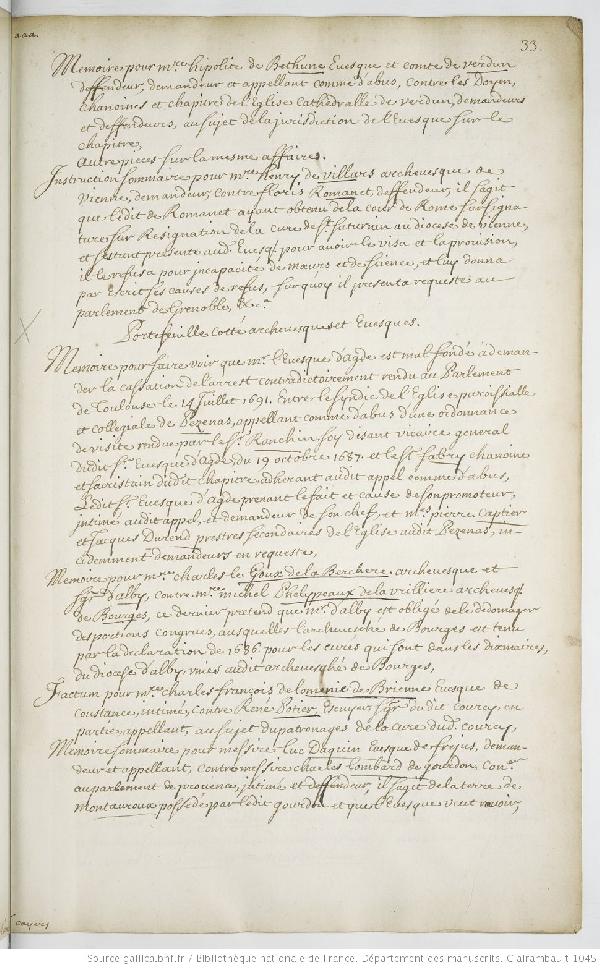 aaa.
33.
Memoire pour mre hipolite de Bethune Evesque et comte de verdun
deffendeur, demandeur et appellant comme d'abus, contre les Doyen,
Chanoines et chapitre de l'Eglise Cathedralle de verdun, demandeurs
et deffendeurs, au sujet de la jurisdiction de l'Evesque sur le
chapitre,
Autre pieces sur la mesme affaire.
Instruction sommaire pour mre henry de villars archevesque de
Vienne, demandeur, contre floris Romanet, deffendeur, il s'agit
que ledit de Romanet ayant obtenu de la cour de Rome sur signa-
ture sur Resignation de la cure de st. saturnin au diocese de vienne,
et s'estant presenté aud. Evesq. pour avoir le visa et la provision,
il le refusa pour incapacité de mœurs et de science, et luy donna
par Escrit ses causes de refus, surquoy il presenta requeste au
parlement de Grenoble, &ca.
Portefeuille cotté archevesques et Evesques.
Memoire pour faire voir que mr. l'Evesque d'agde est mal fondé a deman-
der la cassation de l'arrest contradictoirement rendu au Parlement
de Toulouse le 14 Juillet 1691. Entre le syndic de l'Eglise paroissialle
et collegiale de Pezenas, appellant comme d'abus d'une ordonnance
de visite rendue par le sr. Ranchin soy disant vicaire general
dudit sr. Evesque d'Agde, du 19 octobre 1687. et le sr. fabry chanoine
et sacristain dudit chapitre adherant audit appel comme d'abus,
Ledit sr. Evesque d'agde prenant le fait et cause de son promoteur,
intimé audit appel, et demandeur de son chef, et mres pierre Captier
et Jacques Durend prestres secondaires de l'Eglise audit Pezenas, in-
cidemment demandeurs en requeste,
Memoire pour mre. charles le Goux de la Berchere archevesque et
sgr. d'alby, contre mre michel Phelyppeaux de la vrilliere archevesq.
de Bourges, ce dernier pretend que mr. d'alby est obligé de le dedomager
des portions congrues, ausquelles l'archevesché de Bourges est tenu
par la declaration de 1686 pour les cures qui sont dans les dixmaires,
du diocese d'alby, unies audit archevesché de Bourges,
Factum pour mre charles françois de lomenie de Brienne Evesque de
coustance, intimé, contre René Potier, Escuyer sgr. dudit courcy, en
partie, appellant, au sujet du patronages de la cure dud. courcy,
Memoire sommaire, pour messire Luc Daquin Evesque de frejus, deman-
deur et appellant, contre messire charles lombard de gourdon conser.
au parlement de provence, intimé et deffendeur, il s'agit de la terre de
Montauroux possedée par ledit gourdon et que l'Evesque veut ravoir,
cayers
Source gallica.bnf.fr / Bibliothèque nationale de France. Département des manuscrits. Clairambault 1045